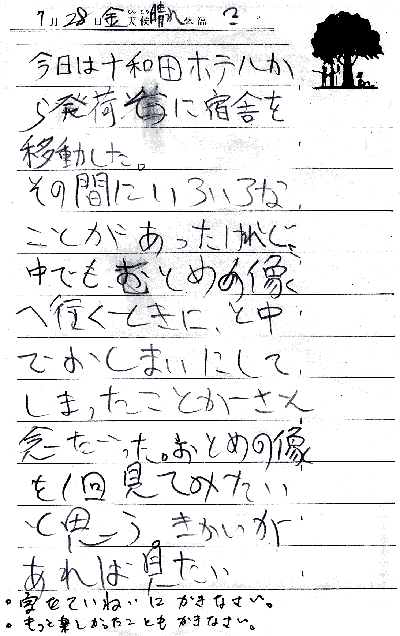 7月28日金天候晴れ体温
今日は十和田ホテルか
ら発荷に宿舎を
移動した。
その間にいろいろな
ことがあったけれど、
中でも、おとめの像
へ行くときに、と中
でおしまいにして
しまったことがざん
念だった。おとめの像
を1回見てみたい
と思う きかいが
あれば見たい
・字をていねいにかきなさい。
・もっと楽しかったこともかきなさい。